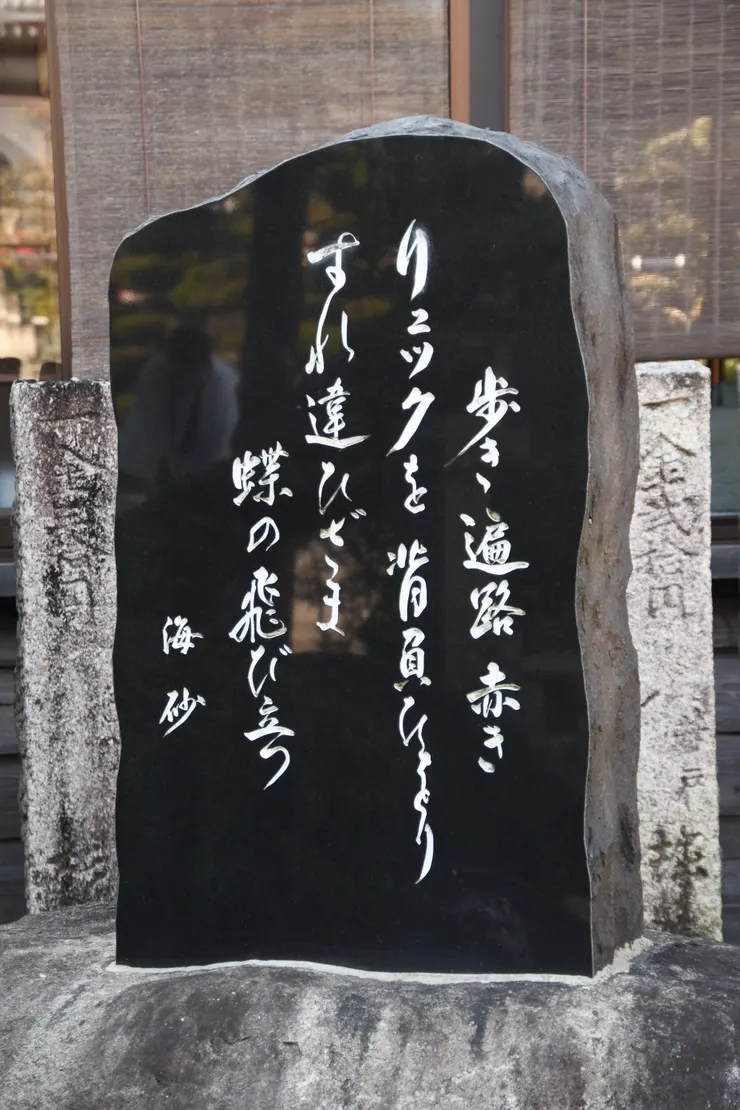 歩き遍路 赤き
リュックを背負ひをり
すれ違ひざま
蝶の飛び立つ
海砂
一金弐拾円